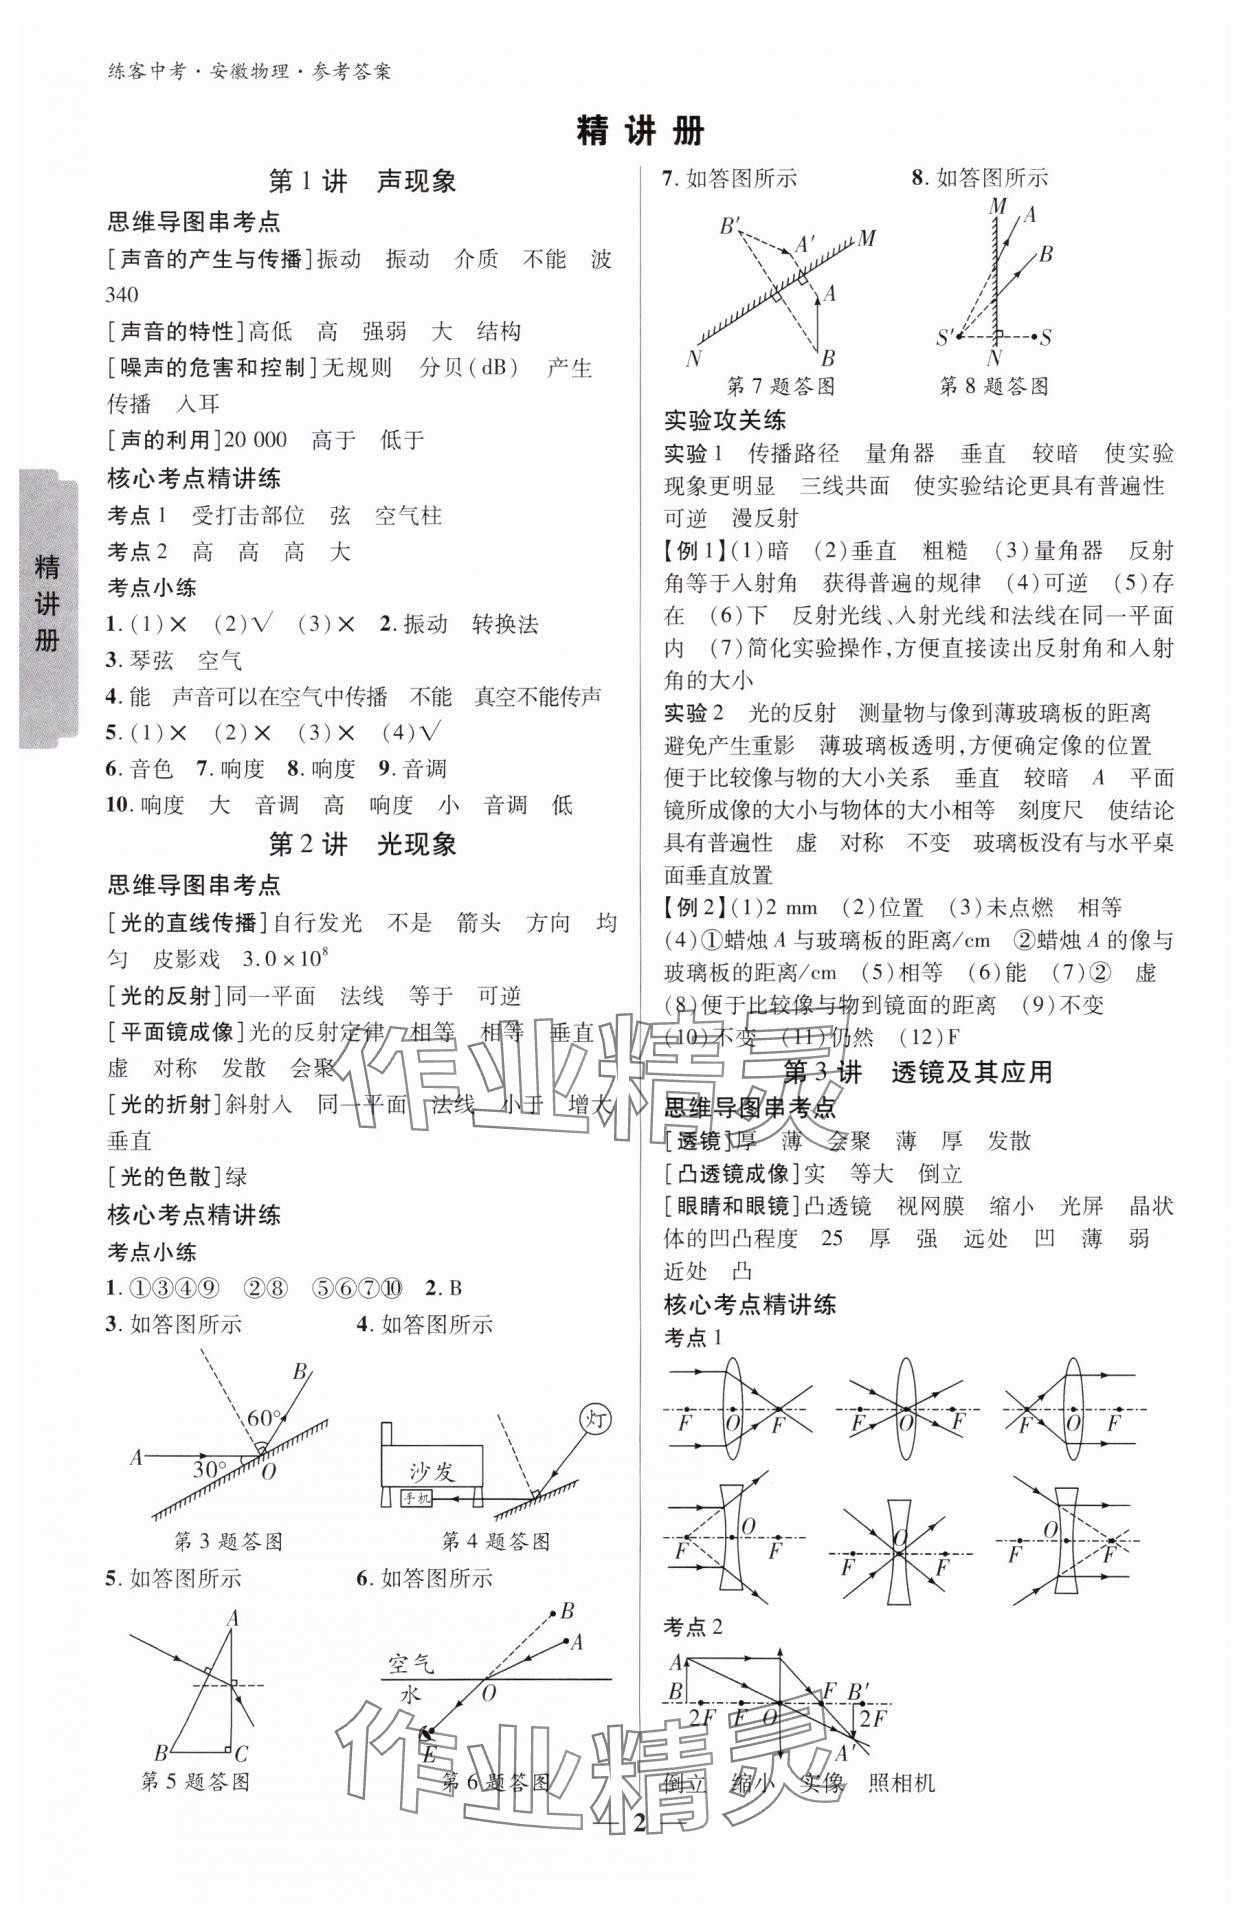 练客中考·安徽物理·参考答案
精讲册
精讲册
第1讲 声现象
思维导图串考点
[声音的产生与传播]振动 振动 介质 不能 波
340
[声音的特性]高低 高 强弱 大 结构
[噪声的危害和控制]无规则 分贝(dB) 产生
传播 人耳
[声的利用]20 000 高于 低于
核心考点精讲练
考点1 受打击部位 弦 空气柱
考点2 高 高 高 大
考点小练
1.(1)× (2)√ (3)× 2.振动 转换法
3.琴弦 空气
4.能 声音可以在空气中传播 不能 真空不能传声
5.(1)× (2)× (3)× (4)√
6.音色 7.响度 8.响度 9.音调
10.响度 大 音调 高 响度 小 音调 低
第2讲 光现象
思维导图串考点
[光的直线传播]自行发光 不是 箭头 方向 均
匀 皮影戏 3.0×10⁸
[光的反射]同一平面 法线 等于 可逆
[平面镜成像]光的反射定律 相等 相等 垂直
虚 对称 发散 会聚
[光的折射]斜射入 同一平面 法线 小于 增大
垂直
[光的色散]绿
核心考点精讲练
考点小练
1.①③④⑨ ②⑧ ⑤⑥⑦⑩ 2.B
3.如答图所示 4.如答图所示
B
60°
A
30° O
第3题答图
灯
沙发
手机
第4题答图
5.如答图所示 6.如答图所示
A
B C
第5题答图
B
A
空气
水 O
E
第6题答图
7.如答图所示 8.如答图所示
B′ A′ M
A
N B
第7题答图
M A
B
S′ S
N
第8题答图
实验攻关练
实验1 传播路径 量角器 垂直 较暗 使实验
现象更明显 三线共面 使实验结论更具有普遍性
可逆 漫反射
【例1】(1)暗 (2)垂直 粗糙 (3)量角器 反射
角等于入射角 获得普遍的规律 (4)可逆 (5)存
在 (6)下 反射光线、入射光线和法线在同一平面
内 (7)简化实验操作,方便直接读出反射角和入射
角的大小
实验2 光的反射 测量物与像到薄玻璃板的距离
避免产生重影 薄玻璃板透明,方便确定像的位置
便于比较像与物的大小关系 垂直 较暗 A 平面
镜所成像的大小与物体的大小相等 刻度尺 使结论
具有普遍性 虚 对称 不变 玻璃板没有与水平桌
面垂直放置
【例2】(1)2 mm (2)位置 (3)未点燃 相等
(4)①蜡烛A与玻璃板的距离/cm ②蜡烛A的像与
玻璃板的距离/cm (5)相等 (6)能 (7)② 虚
(8)便于比较像与物到镜面的距离 (9)不变
(10)不变 (11)仍然 (12)F
第3讲 透镜及其应用
思维导图串考点
[透镜]厚 薄 会聚 薄 厚 发散
[凸透镜成像]实 等大 倒立
[眼睛和眼镜]凸透镜 视网膜 缩小 光屏 晶状
体的凹凸程度 25 厚 强 远处 凹 薄 弱
近处 凸
核心考点精讲练
考点1
F O F
F O F
F O F
F O F
F O F
F O F
考点2
A
B 2F F O F B′ 2F
A′
倒立 缩小 实像 照相机
作业精灵
作业精灵
2